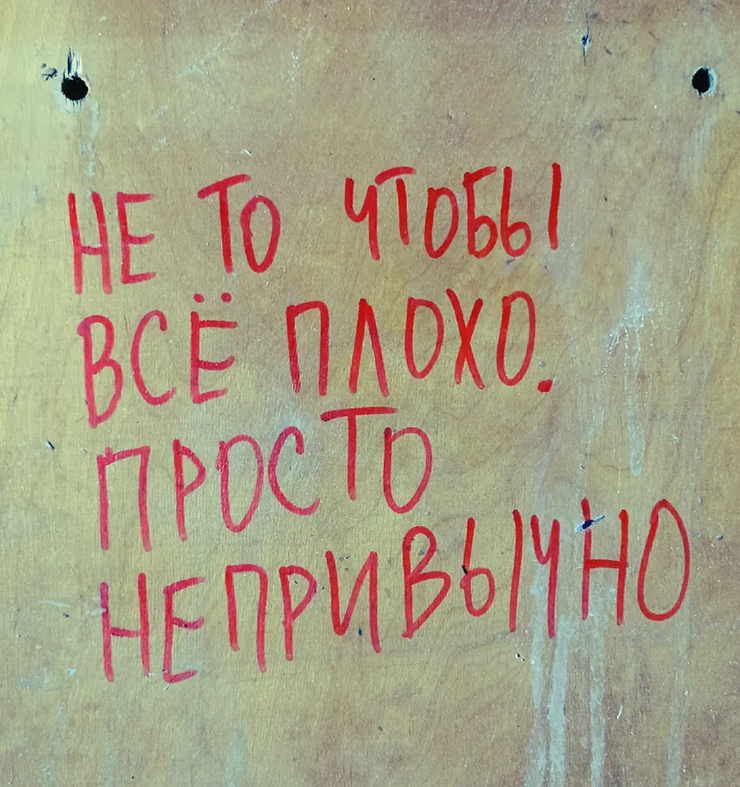 НЕ ТО ЧТОБЫ
ВСЁ ПЛОХО.
ПРОСТО
НЕПРИВЫЧНО